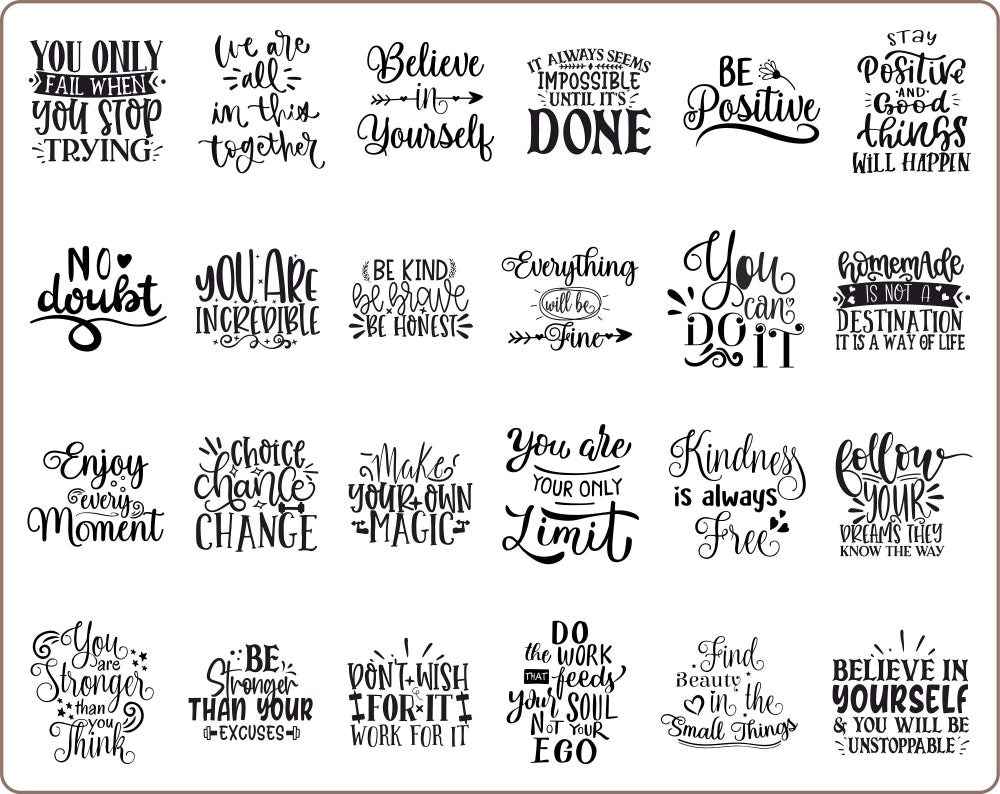 YOU ONLY
FAIL WHEN
YOU STOP
TRYING
we are
all
in this
together
Believe
in
Yourself
IT ALWAYS SEEMS
IMPOSSIBLE
UNTIL IT'S
DONE
BE
Positive
STAY
Positive
AND
Good
things
WILL HAPPEN
NO
doubt
YOU ARE
INCREDIBLE
BE KIND
be brave
BE HONEST
Everything
will be
Fine
You
can
DO IT
homemade
IS NOT A
DESTINATION
IT IS A WAY OF LIFE
Enjoy
every
Moment
choice
chance
CHANGE
Make
YOUR OWN
MAGIC
You are
YOUR ONLY
Limit
Kindness
is always
Free
follow
YOUR
DREAMS THEY
KNOW THE WAY
You
are
Stronger
than
you
Think
BE
Stronger
THAN YOUR
EXCUSES
DON'T WISH
FOR IT
WORK FOR IT
DO
the WORK
THAT feeds
your SOUL
NOT YOUR
EGO
Find
Beauty
in the
Small Things
BELIEVE IN
YOURSELF
& YOU WILL BE
UNSTOPPABLE